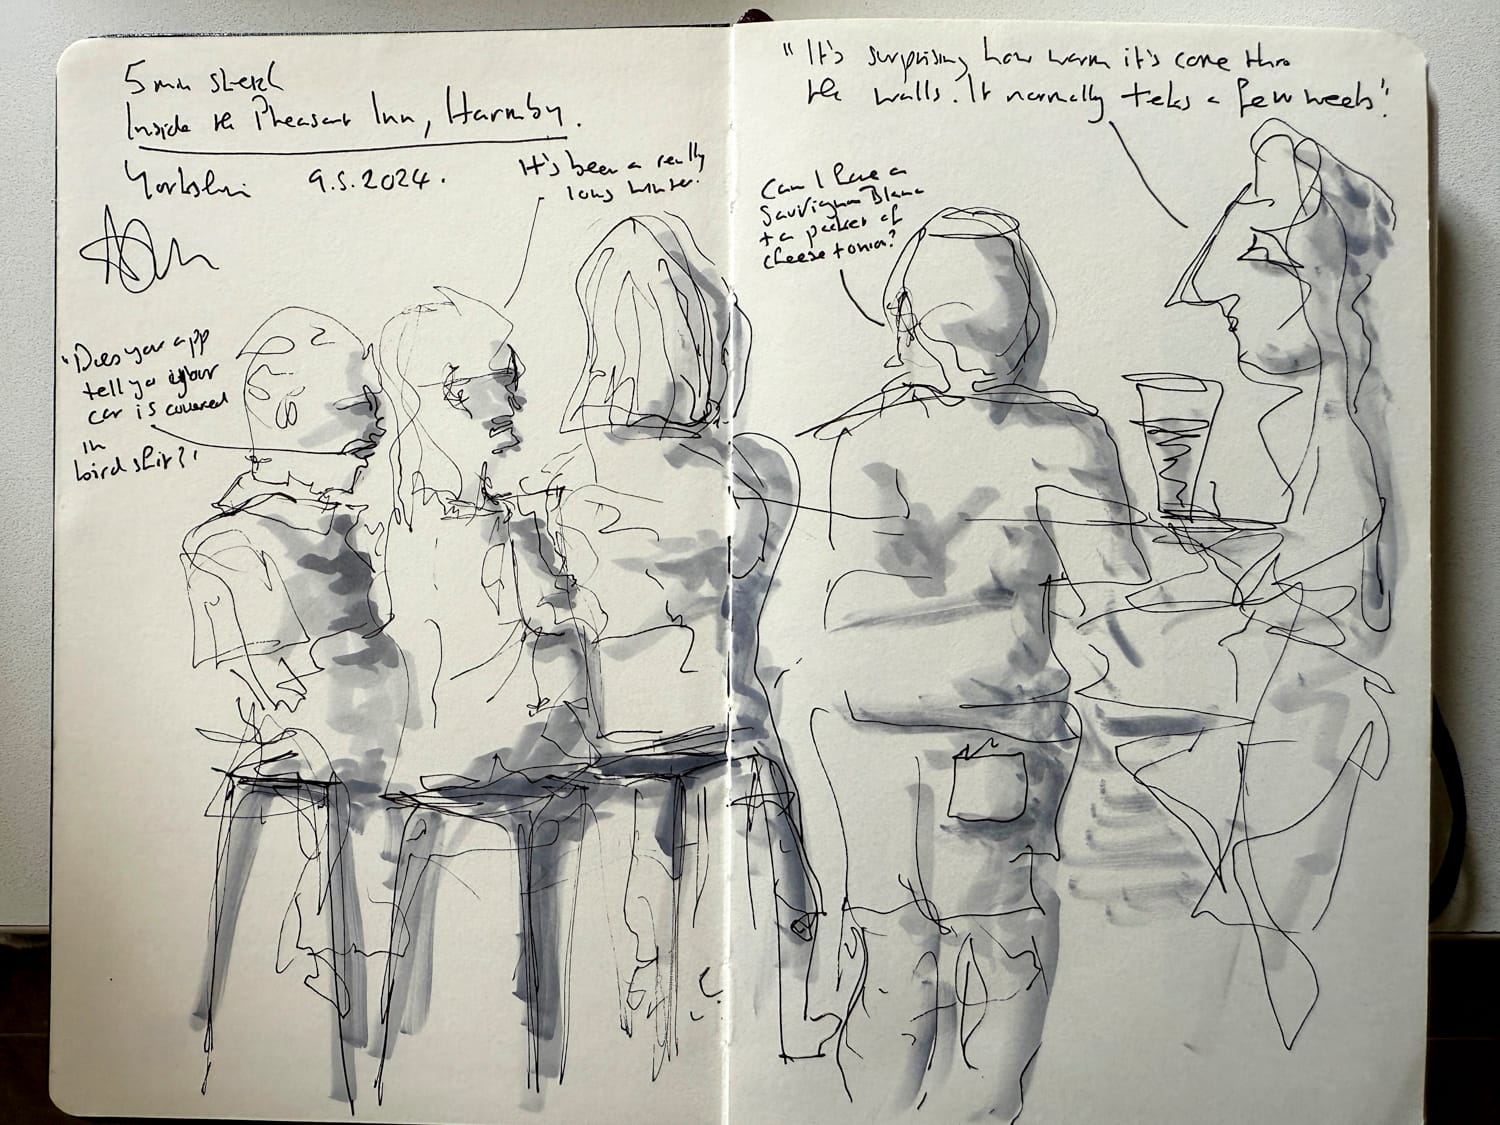 5 min sketch
Inside the Pheasant Inn, Harmby.
Yorkshire 9.5.2024.
It's been a really
long winter.
"Does your app
tell you if your
car is covered
in
bird shit?"
"It's surprising how warm it's come thro
the walls. It normally takes a few weeks".
Can I have a
Sauvignon Blanc
+ a packet of
cheese + onion?